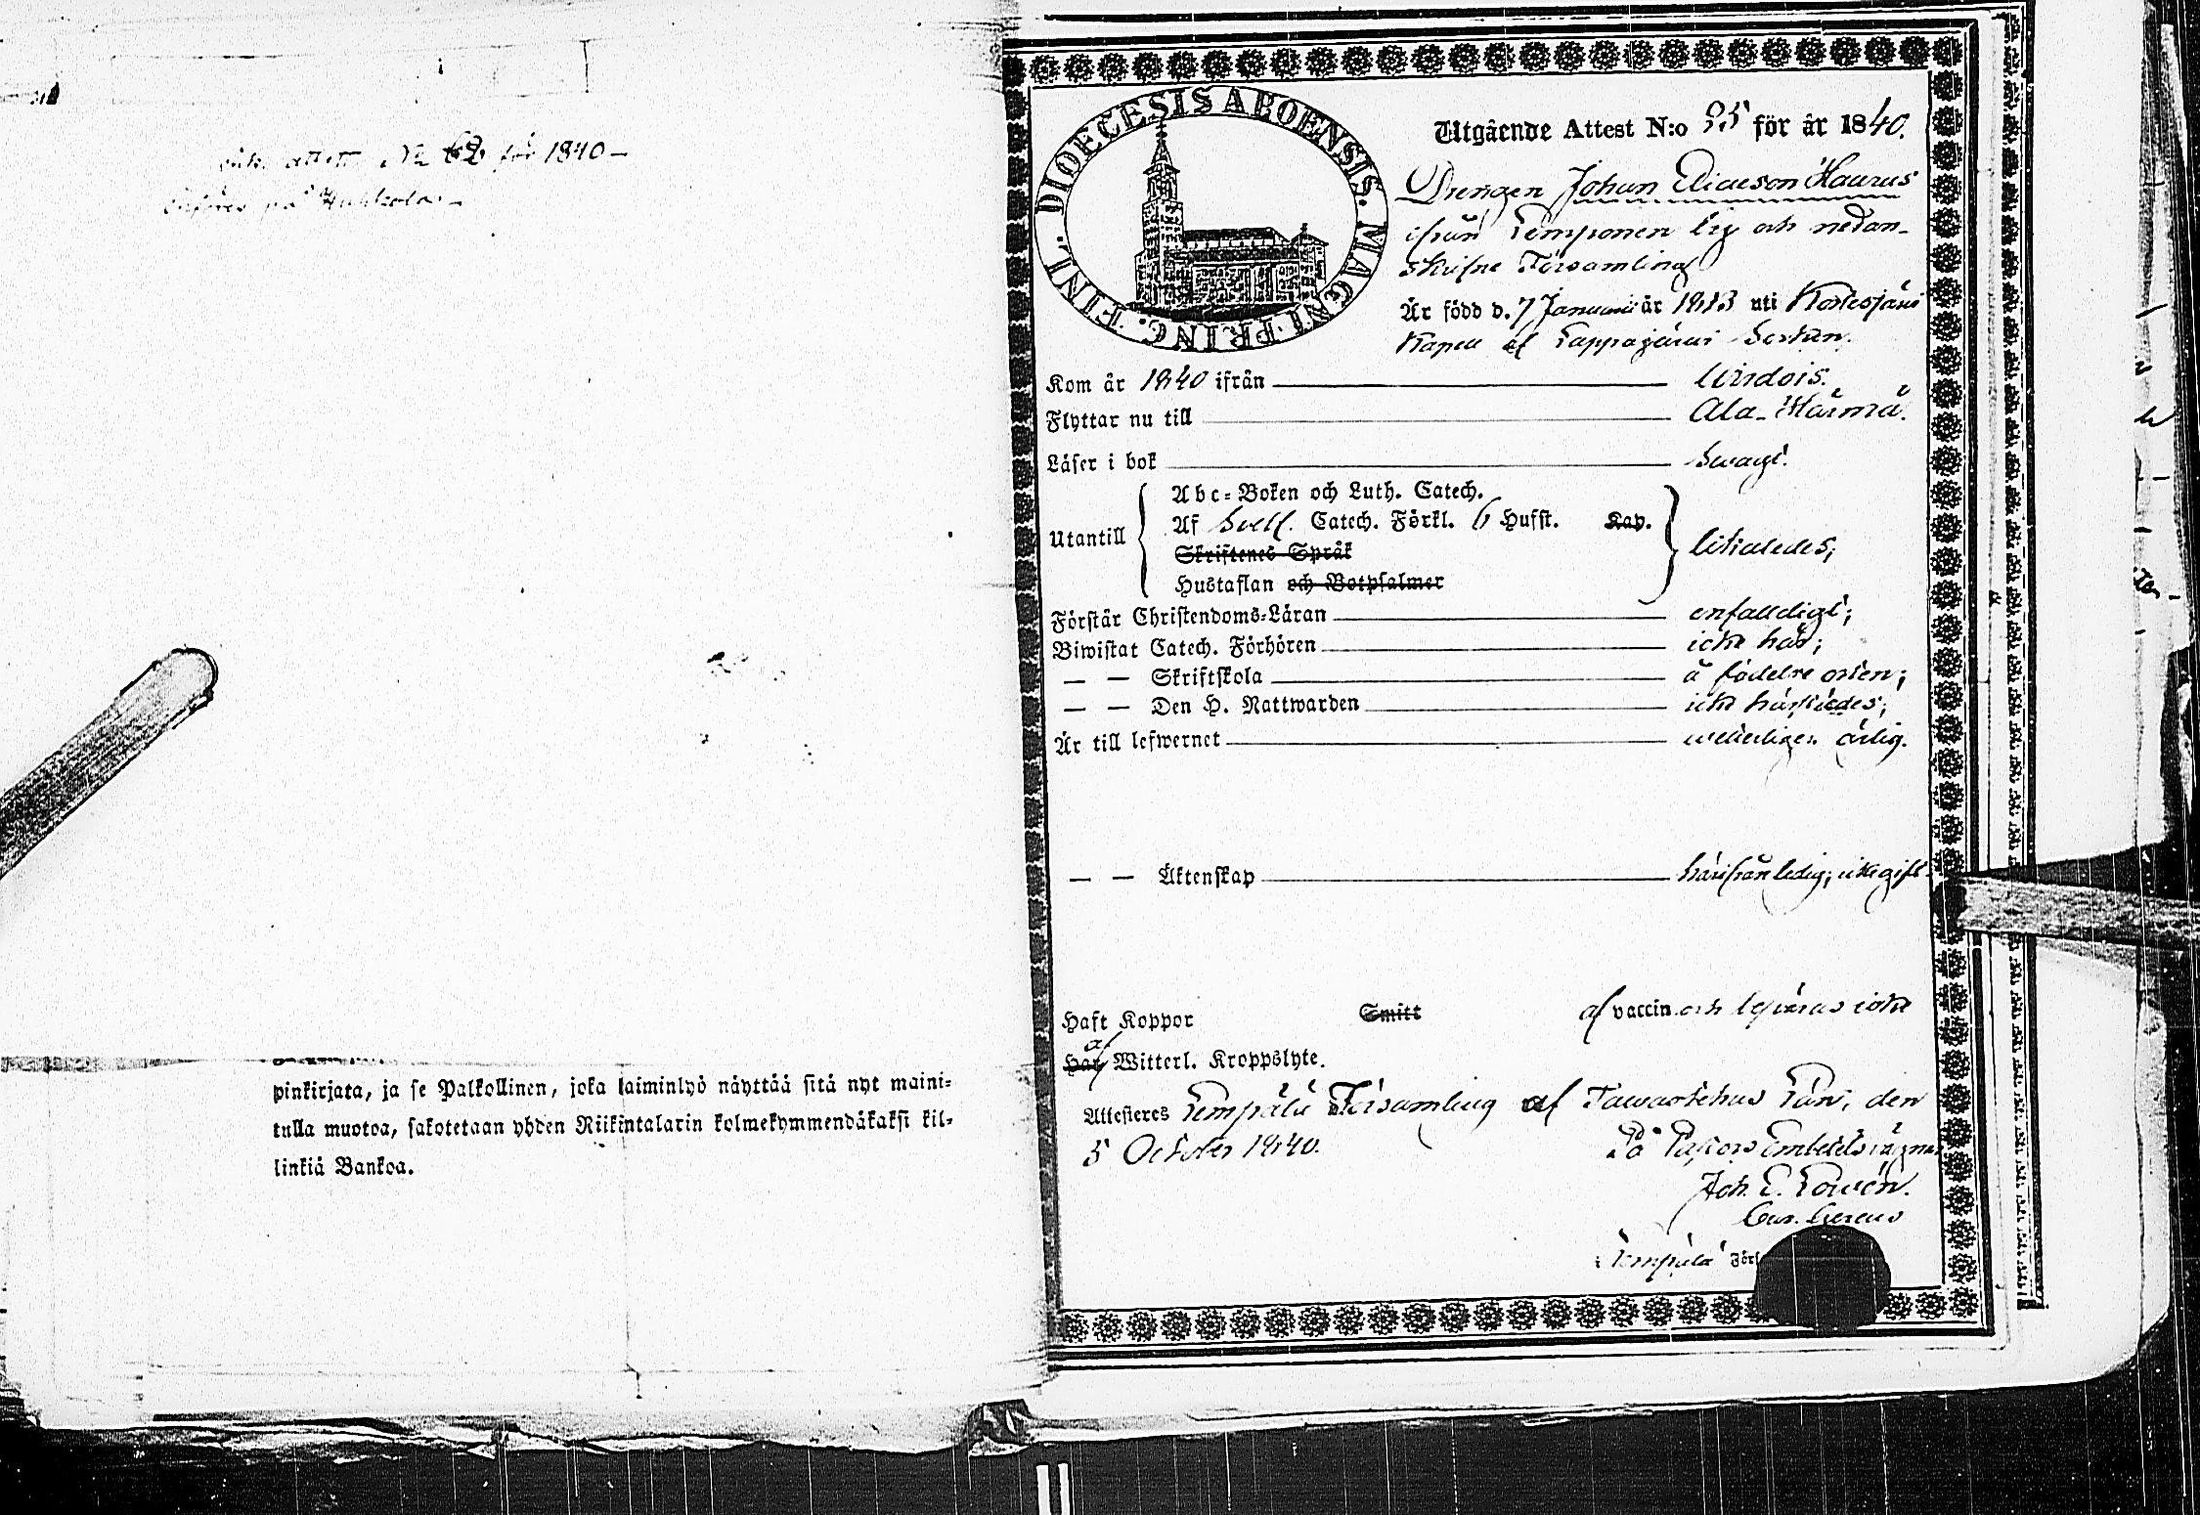 attest No 62 för 1840 –
införes på
pinkirjata, ja se Palkollinen, joka laiminlyö näyttää sitä nyt maini=
tulla muotoa, sakotetaan yhden Riikintalarin kolmekymmendäkaksi kil=
linkiä Bankoa.
DIOECESIS ABOENSIS. MAGNI PRINC. FINL.
Utgående Attest N:o 95 för år 1840.
Drengen Johan Eliaeson Haurus
ifrån Lemponen by och nedan-
skrifne Församling
Är född d. 7 Januari år 1813 uti Kortesjärvi
Kapell af Lappajärvi Sockn.
Kom år 1840 ifrån Wirdois.
Flyttar nu till Ala-Härmä.
Läser i bok Svagt.
Abc=Boken och Luth. Catech.
Utantill Af Svell. Catech. Förkl. 6 Hufst. Kap. likaledes;
Skriftenes Språk
Hustaflan och Botpsalmer
Förstår Christendoms=Läran enfalldigt;
Biwistat Catech. Förhören icke här;
— — Skriftskola å födelse orten;
— — Den H. Nattwarden icke härstädes;
Är till lefwernet wetterligen ärlig.
— — Äktenskap härifrån ledig; icke gift
Haft Koppor Smitt af vaccin och lefveras icke
Har af Witterl. Kroppslyte.
Attesteres Lempälä Församling af Tawastehus Län, den
5 October 1840. På Pastors Embetets vägnar
Joh. E.
Lempälä Förs